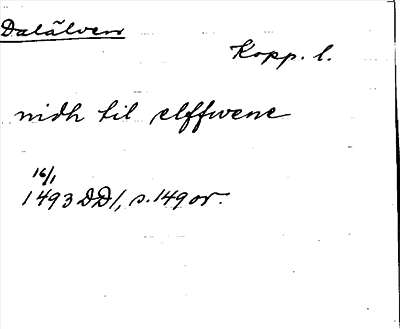 Dalälven
Kopp. l.
nidh til elffwene
16/1
1493 DD1, s. 149 or.